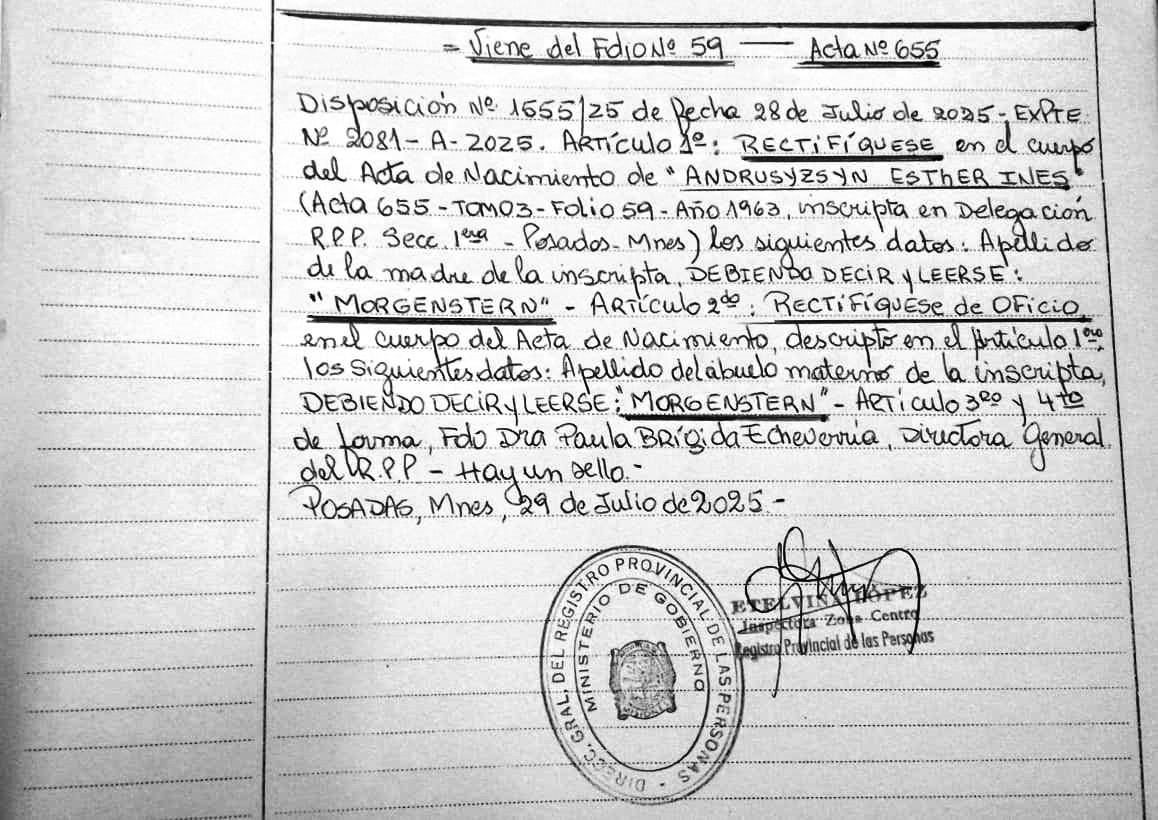 = Viene del Folio Nº 59 — Acta Nº 655
Disposición Nº 1655/25 de fecha 28 de Julio de 2025 - EXPTE
Nº 2081 - A - 2025. ARTÍCULO 1º: RECTIFÍQUESE en el cuerpo
del Acta de Nacimiento de "ANDRUSYZSYN ESTHER INES"
(Acta 655 - TOMO 3 - Folio 59 - Año 1963, inscripta en Delegación
R.P.P. Secc. 1era - Posadas - Mnes) los siguientes datos: Apellido
de la madre de la inscripta, DEBIENDO DECIR y LEERSE:
"MORGENSTERN" - ARTÍCULO 2do: RECTIFÍQUESE de OFICIO
en el cuerpo del Acta de Nacimiento, descripto en el Artículo 1ero,
los siguientes datos: Apellido del abuelo materno de la inscripta,
DEBIENDO DECIR y LEERSE: "MORGENSTERN" - ARTÍCULO 3ro y 4to
de forma, Fdo Dra Paula BRígida Echeverría, Directora General
del R.P.P - Hay un sello.-
POSADAS, Mnes, 29 de Julio de 2025.-
DIRECC. GRAL. DEL REGISTRO PROVINCIAL DE LAS PERSONAS -
MINISTERIO DE GOBIERNO
ETELVINA LOPEZ
Inspectora Zona Centro
Registro Provincial de las Personas